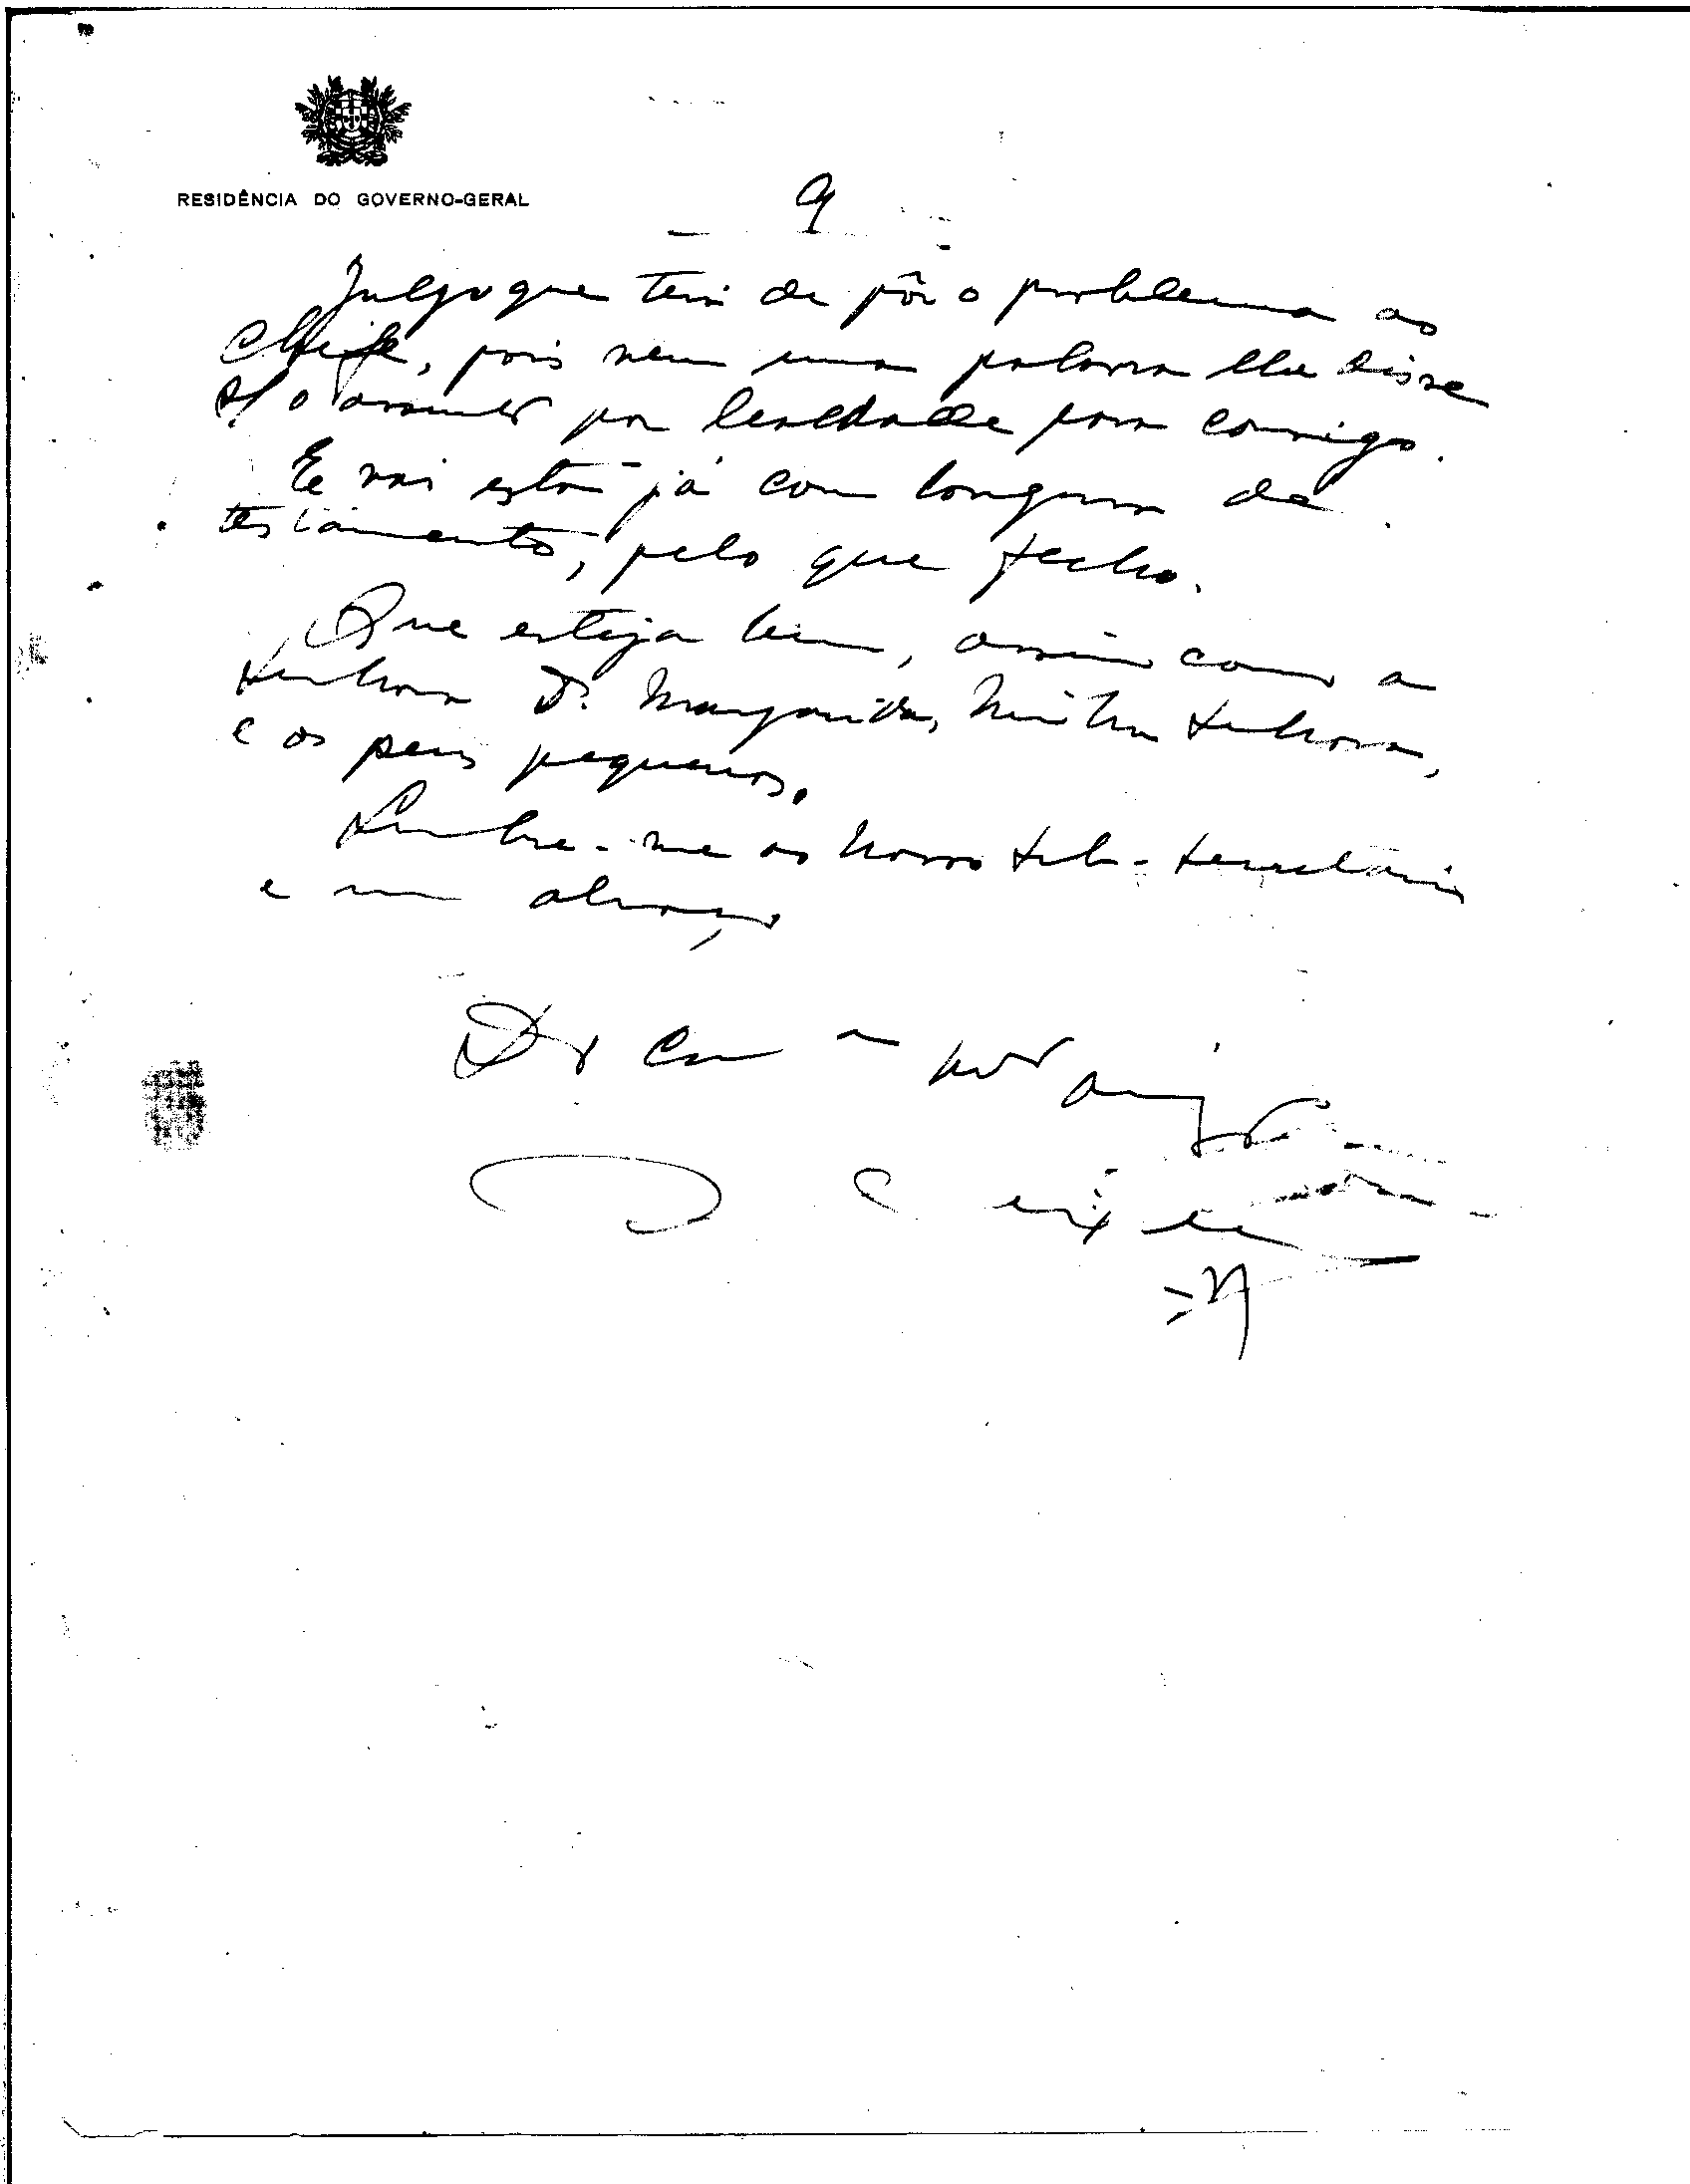 RESIDÊNCIA DO GOVERNO-GERAL
9
Julgo que tem de pôr o problema ao
Chefe, pois nem uma palavra lhe disse
s/ o assunto por lealdade para comigo.
E vai esta já com longura de
testamento, pelo que fecho.
Que esteja bem, assim como a
Senhora D. Margarida, Minha Senhora,
e os seus pequenos.
Lembre-me ao nosso Sub-Secretário
e um abraço
Do
amigo